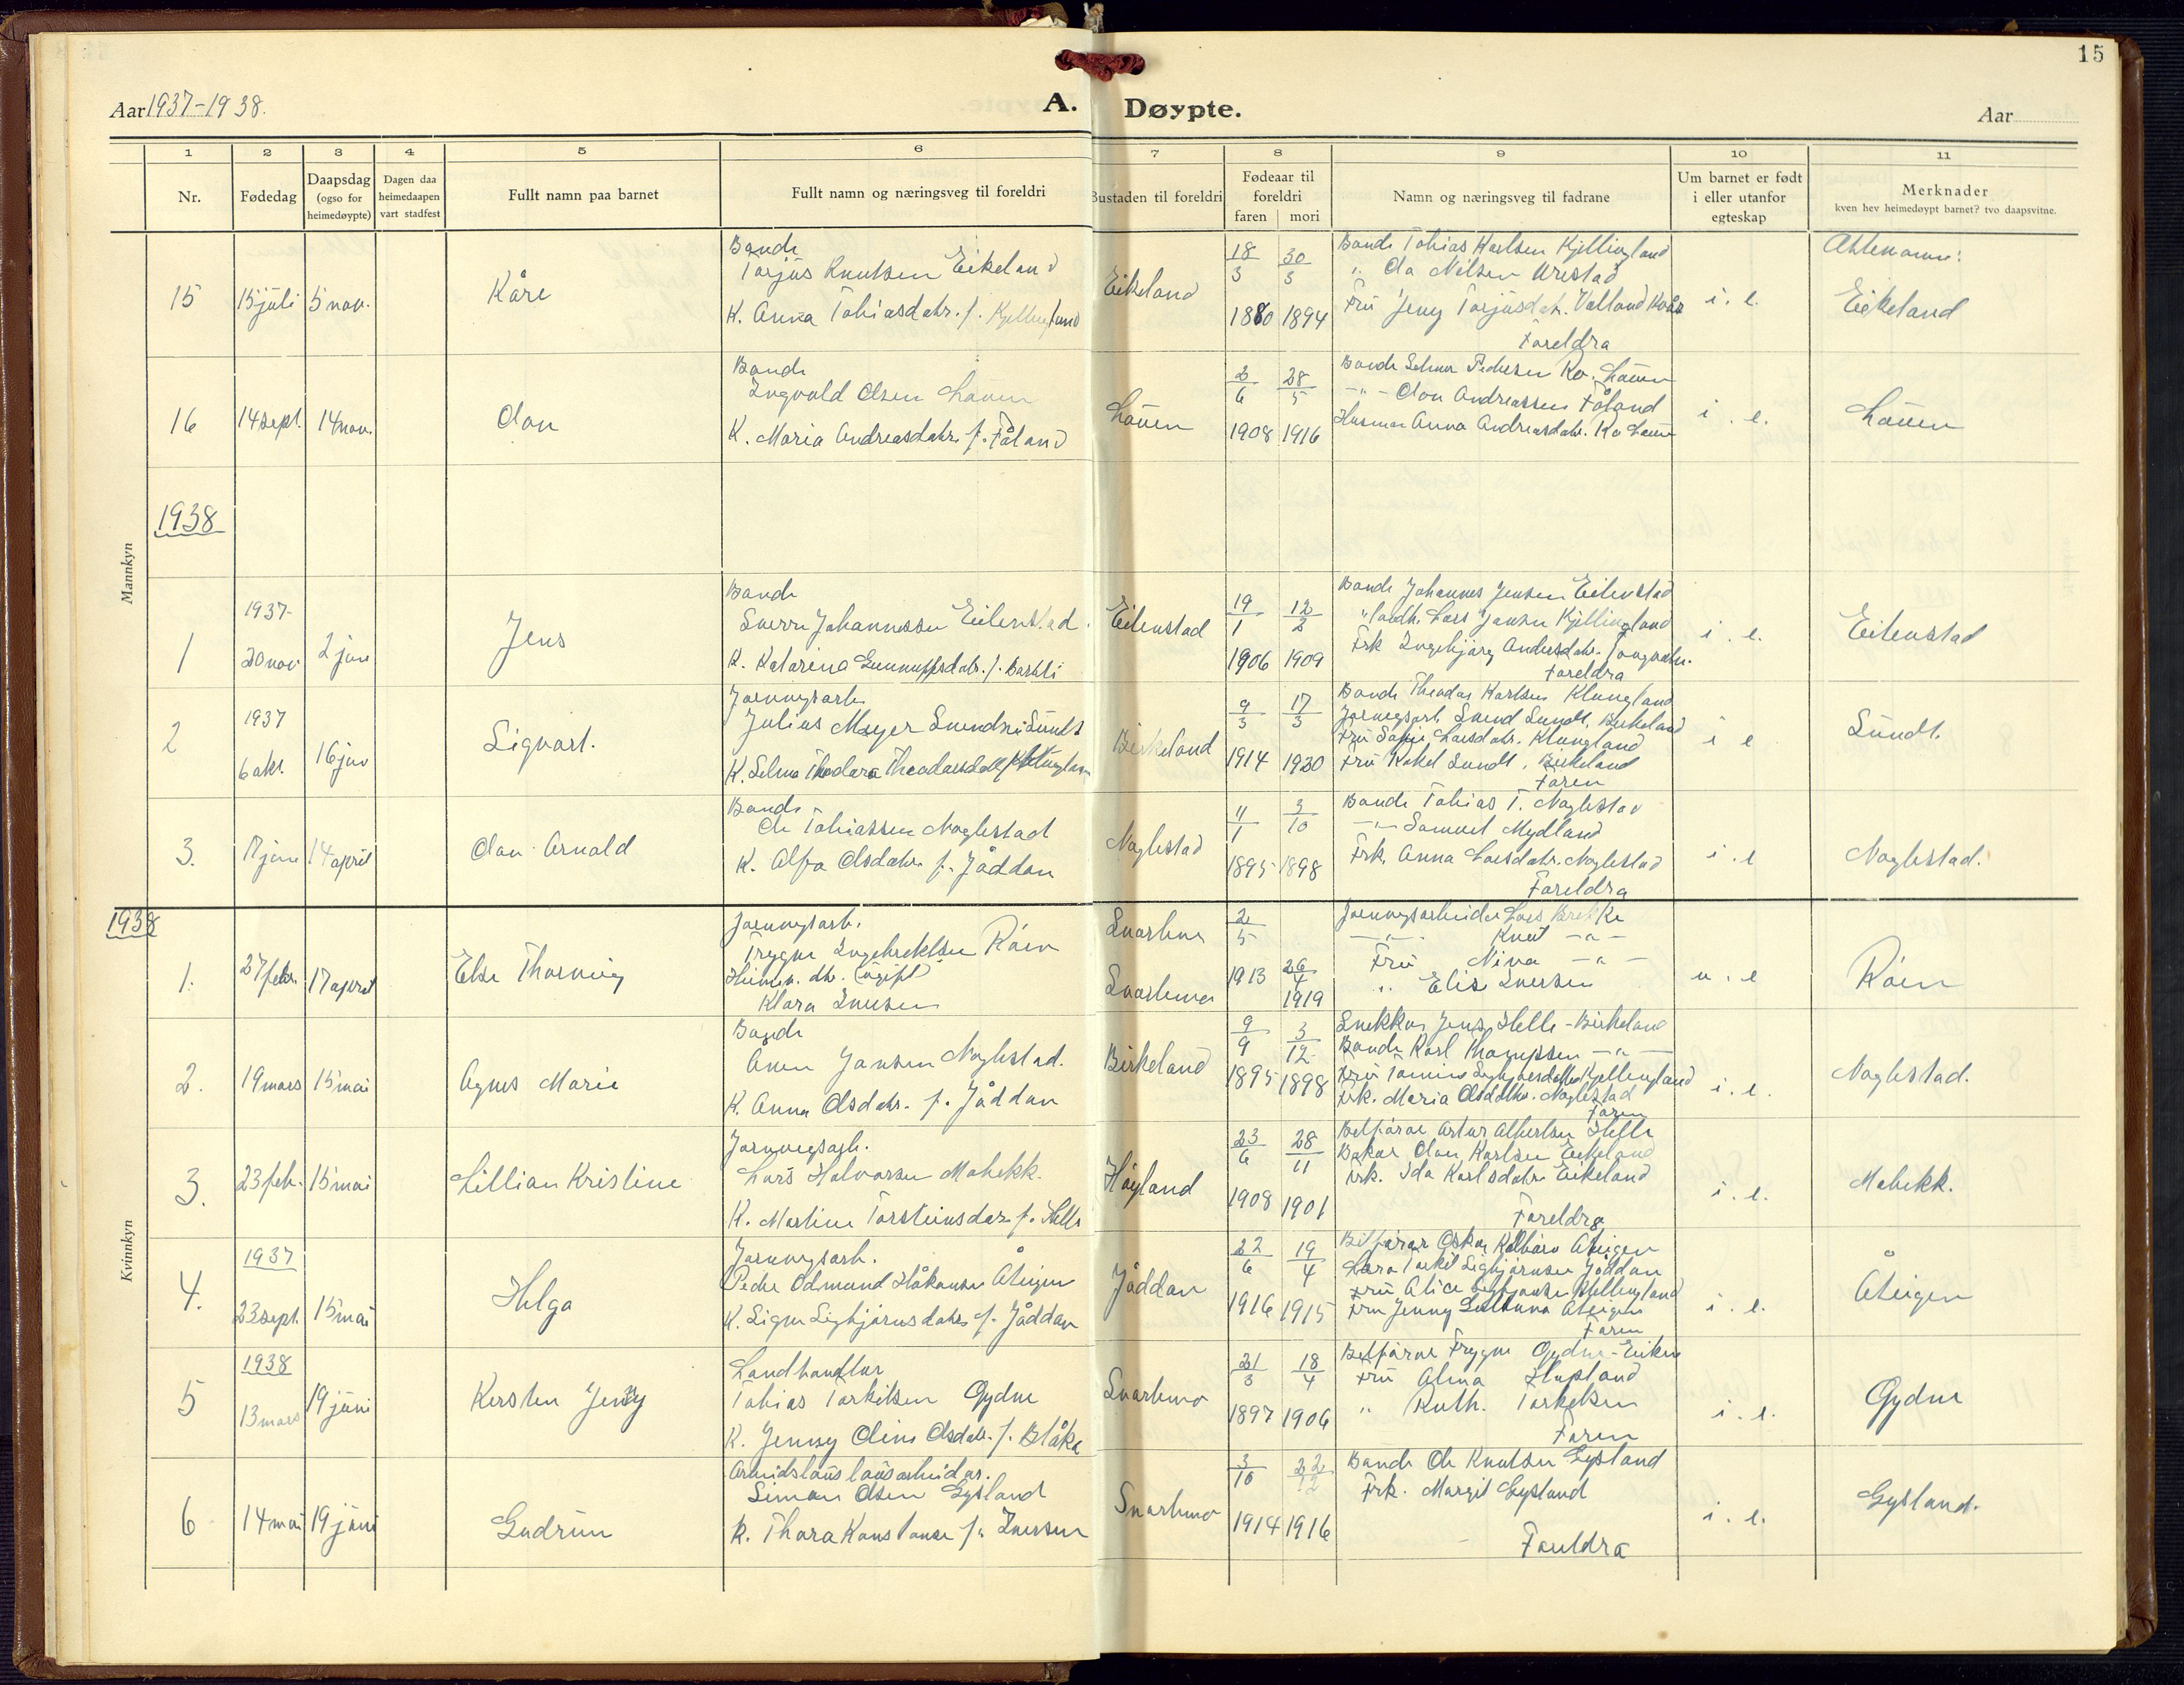 15
Aar 1937-1938.
A. Døypte.
Aar
1 2 3 4 5 6 7 8 9 10 11
Nr.
Fødedag
Daapsdag
(ogso for
heimedøypte)
Dagen daa
heimedaapen
vart stadfest
Fullt namn paa barnet
Fullt namn og næringsveg til foreldri
Bustaden til foreldri
Fødeaar til
foreldri
faren mori
Namn og næringsveg til fadrane
Um barnet er født
i eller utanfor
egteskap
Merknader
kven hev heimedøypt barnet? tvo daapsvitne.
Mannkyn
15
15 juli
5 nov.
Kåre
Bonde
Torjus Knutsen Eikeland
K. Anna Tobiasdotr. f. Kjellingland
Eikeland
18/3 1880
30/3 1894
Bonde Tobias Karlsen Kjellingland
" Ola Nilsen Urestad
Fru Jeny Torjusdtr. Valland
Foreldra
i. e.
Ættenamn:
Eikeland
16
14 sept.
14 nov.
Olav
Bonde
Ingvald Olsen
K. Maria Andreasdotr. f. Tåland
2/6 1908
28/5 1916
Olav Andreassen Tåland
Anna Andreasdotr.
i. e.
1938
1
1937
20 nov
2 jan
Jens
Bonde
Sverre Johannessen Eilevstad
K. Katarina f. Barkli
Eilevstad
19/1 1906
12/2 1909
Bonde Johannes Jensen Eilevstad
Lars Jansen Kjellingland
Frk Ingebjørg Andersdotr.
Foreldra
i. e.
Eilevstad
2
1937
6 okt.
16 jan
Sigvart.
Jarnvegsarb.
Julius Meyer Svendsen Sundt
K. Selma Theodora Theodorsdotr f. Klungland
Birkeland
9/3 1914
17/3 1920
Bonde Theodor Karlsen Klungland
Jarnvegsarb. Svend Sundt, Birkeland
Fru Sofie Larsdotr. Klungland
Fru Rakel Sundt, Birkeland
Faren
i e
Sundt.
3.
17 jan
14 april
Olav Arnold
Bonde
Ole Tobiassen Noglestad
K. Alfa Olsdotr. f. Jåddan
Noglestad
11/1 1895
3/10 1898
Bonde Tobias T. Noglestad
-"- Samuel Mydland
Frk. Anna Larsdotr. Noglestad
Foreldra
i. e
Noglestad.
Kvinnkyn
1938
1.
27 febr.
17 april
Else Thornvig
Jarnvegsarb.
Trygve Ingebrektsen Röen
Heimev. dtr. (ugift)
Klara Iversen
Snartemo
Snartemo
2/5 1913
26/4 1919
Jarnvegsarbeider Lars Brekke
-"- Knut -"-
Fru Nina -"-
" Elise Iversen
u. e
Röen
2.
19 mars
15 mai
Agnes Marie
Bonde
Ånen Jansen Noglestad.
K. Anna Olsdotr. f. Jåddan
Birkeland
9/9 1895
3/12 1898
Snekkar Jens Helle - Birkeland
Bonde Karl Thompsen -"-
Frk. Maria Olsdotr. Noglestad
Faren
i. e.
Noglestad.
3.
23 feb.
15 mai
Lillian Kristine
Jarnvegsarb.
Lars Halvorsen Mobekk.
K. Martine Torsteinsdotr f. Helle
Höyland
23/6 1908
28/11 1901
Bilförar Artur Albertsen Helle
Bakar Olav Karlsen Eikeland
Frk. Ida Karlsdotr Eikeland
Foreldra
i. e.
Mobekk.
4.
1937
23 sept.
15 mai
Helga
Jarnvegsarb.
Peder Odmund Håkonsen Åteigen
K. Signe Sigbjörnsdotr f. Jåddan
Jåddan
22/6 1916
19/4 1915
Bilförar Oskar Åteigen
Torkel Sigbjörnsen Jåddan
Fru Alice
Fru Jenny Åteigen
Faren
i. e.
Åteigen
5
1938
13 mars
19 juni
Kersten Jenny
Landhandlar
Tobias Torkelsen Gydne
K. Jenny Oline Olsdotr. f. Blåka
Snartemo
21/3 1897
18/4 1906
Bilförar Trygve Gydne - Eiken
Fru Alma
" Ruth. Torkelsen
Faren
i. e.
Gydne
6
14 mai
19 juni
Gudrun
Simon Olsen Gysland
K. Thora Konstanse f. Iversen
Snartemo
3/10 1914
22/12 1916
Bonde Ole Knutsen Gysland
Frk. Margit Gysland
Foreldra
i. e.
Gysland.